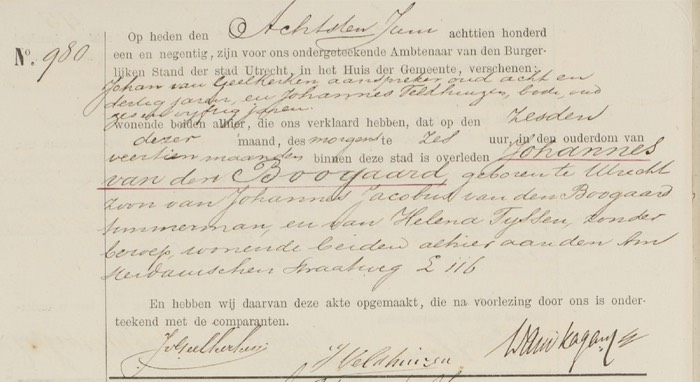 Nº. 980
Op heden den Achtsten Juni achttien honderd
een en negentig, zijn voor ons ondergeteekende Ambtenaar van den Burger-
lijken Stand der stad Utrecht, in het Huis der Gemeente, verschenen:
Johan van Geelkerken aanspreker oud acht en
dertig jaren, en Johannes Velthuizen, bode, oud
zes en vijftig jaren.
wonende beiden alhier, die ons verklaard hebben, dat op den zesden
dezer maand, des morgens te zes uur, in den ouderdom van
veertien maanden binnen deze stad is overleden Johannes
van den Boogaard, geboren te Utrecht
zoon van Johannes Jacobus van den Boogaard
timmerman, en van Helena Tyssen, zonder
beroep, wonende beiden alhier aan den Am
sterdamschen straatweg E 116
En hebben wij daarvan deze akte opgemaakt, die na voorlezing door ons is onder-
teekend met de comparanten.
JvGeelkerken